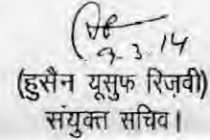 9.3.14
(हुसैन यूसुफ रिज़वी)
संयुक्त सचिव।